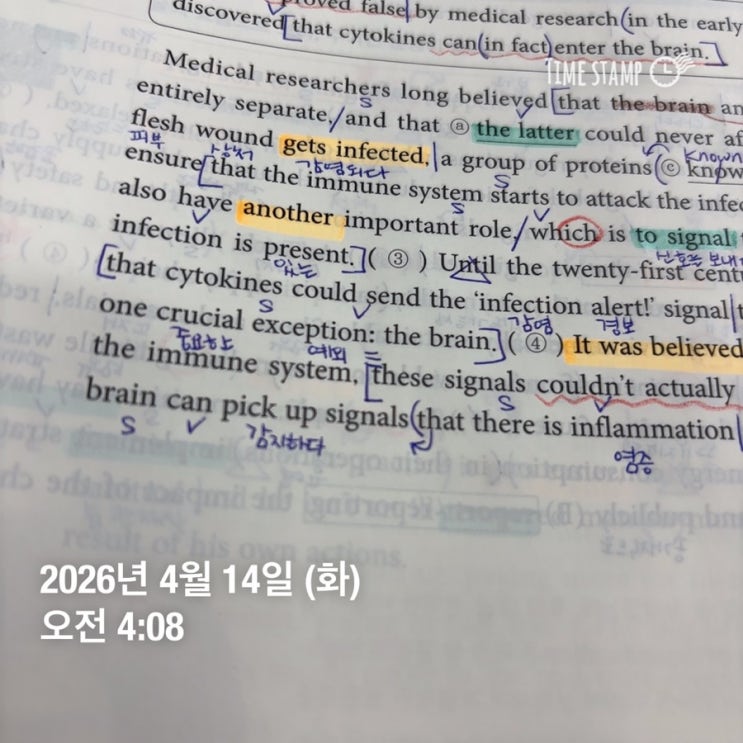 proved false by medical research (in the early
discovered [that cytokines can (in fact) enter the brain.]
TIME STAMP
Medical researchers long believed [that the brain an
S
entirely separate, / and that ⓐ the latter could never af
flesh wound gets infected, a group of proteins (ⓒ know
피부 감염되다 known
ensure [that the immune system starts to attack the infec
S S
also have another important role, / which is to signal
infection is present.] ( ③ ) Until the twenty-first cent
있는
[that cytokines could send the ‘infection alert!’ signal
S 감염 경보
one crucial exception: the brain.] ( ④ ) It was believed
중요한 예외
the immune system, [these signals couldn’t actually
S
brain can pick up signals (that there is inflammation
S V 감지하다 염증
result of his own actions.
2026년 4월 14일 (화)
오전 4:08